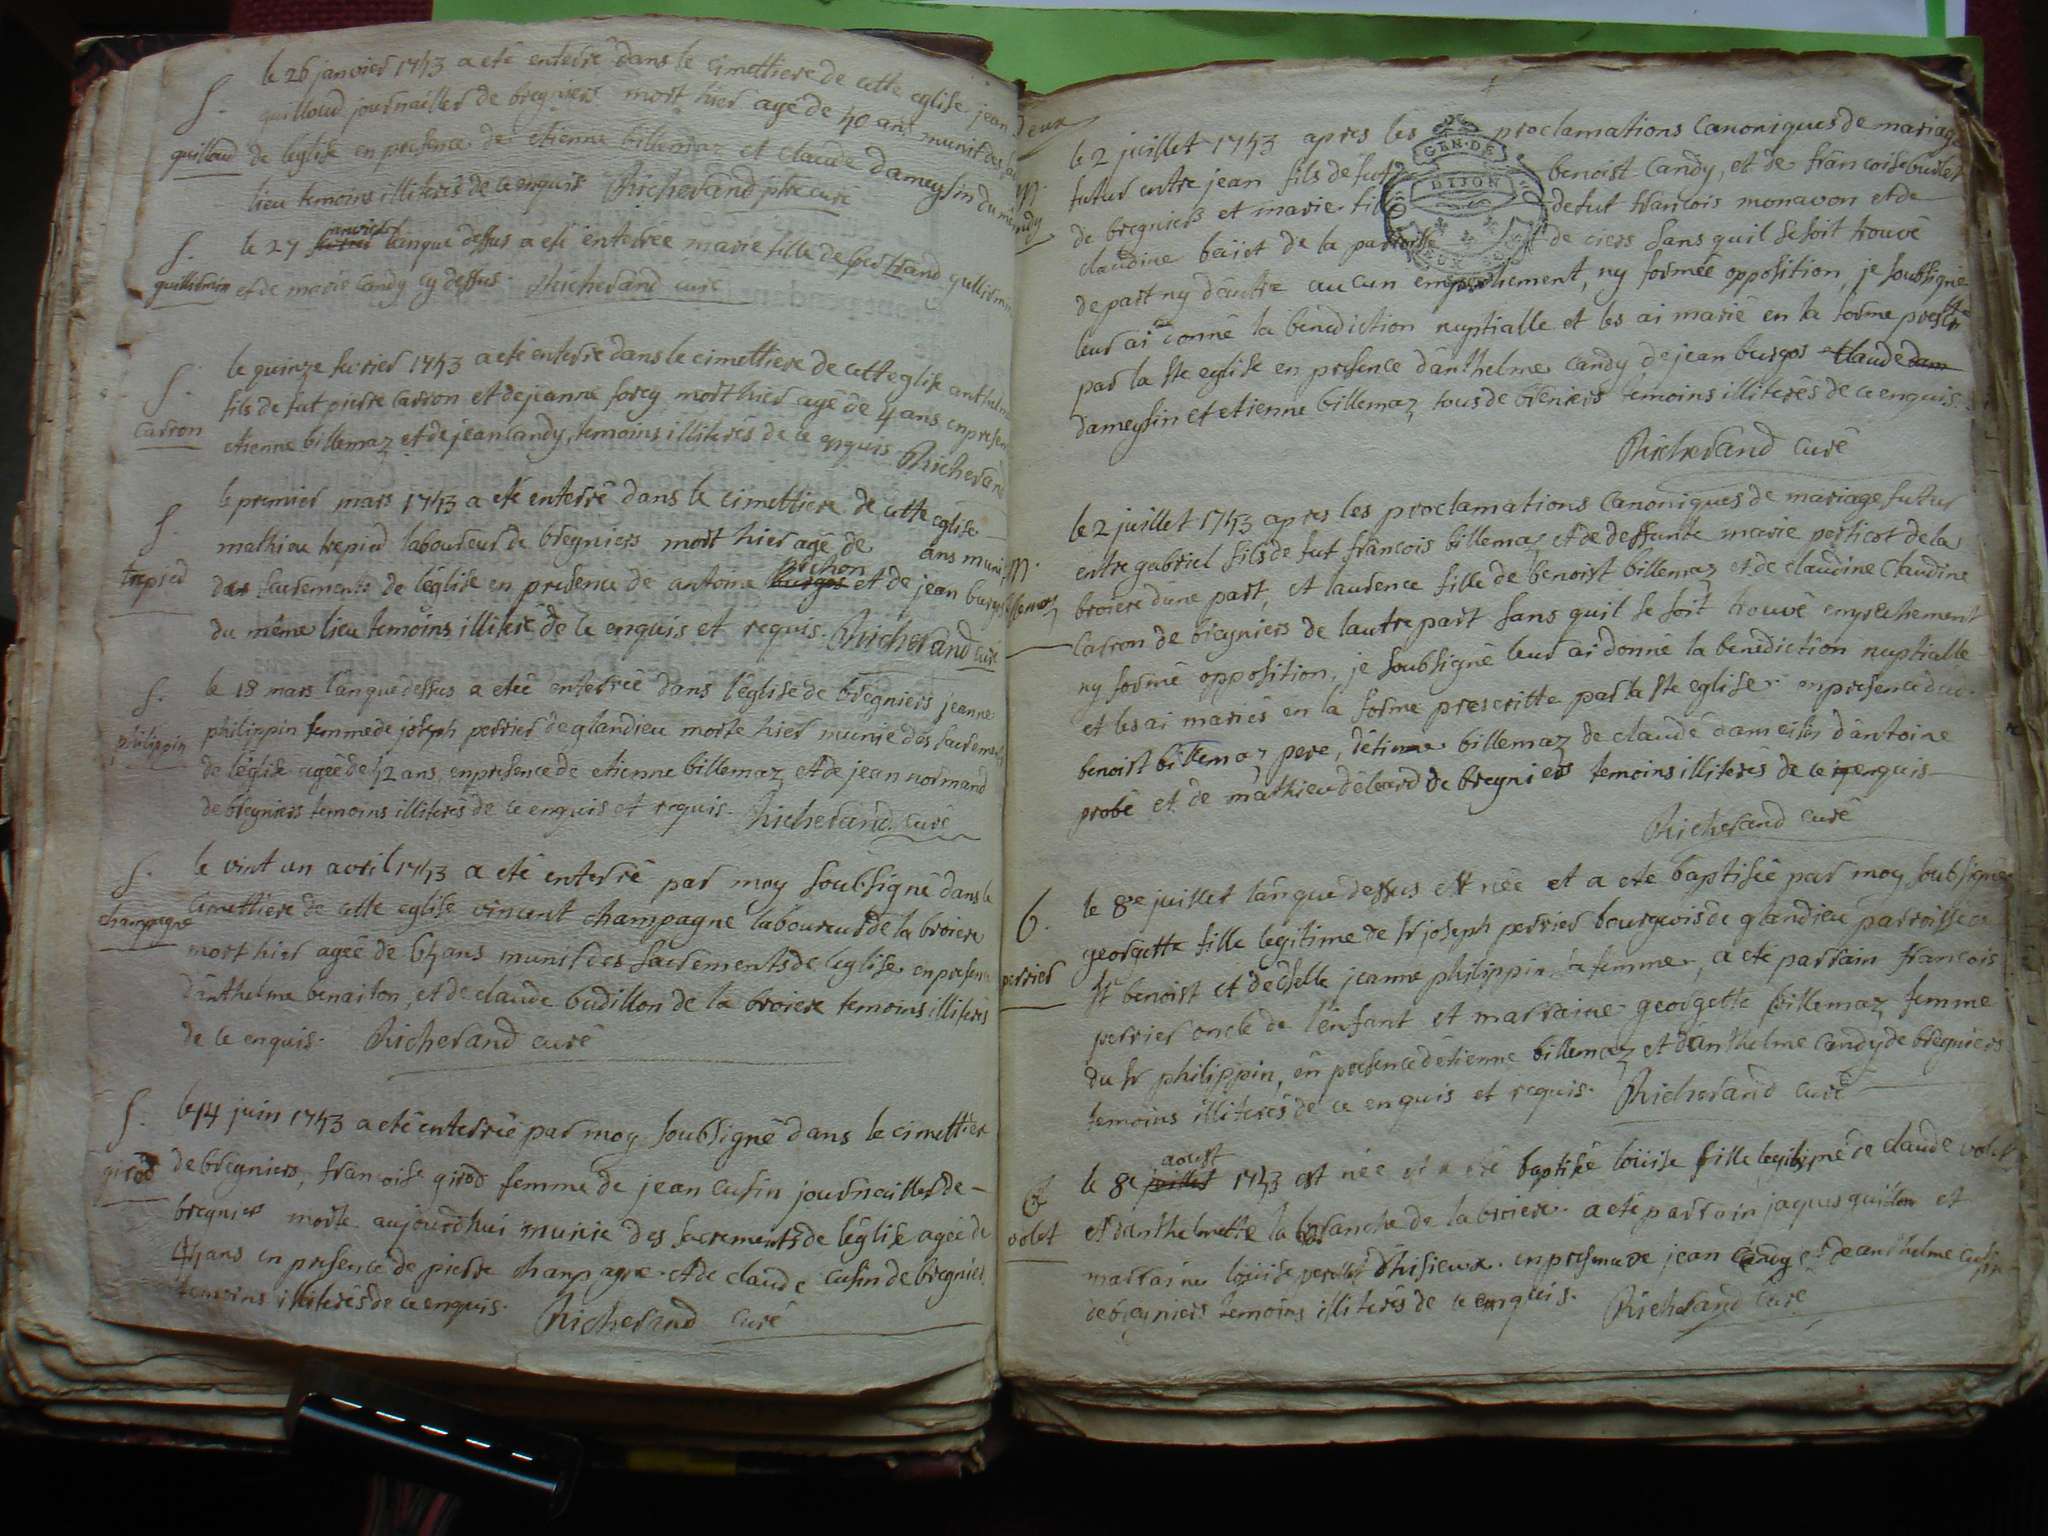 le 26 janvier 1743 a eté enterré dans le cimettiere de cette eglise jean
S. guilloud journaillier de bregniers mort hier agé de 40 ans munit des
guilloud de leglise en presence de etienne billemaz et claude dameysin du
lieu temoins illiterés de ce enquis Richerand ptre curé
S. le 27 janvier lanque dessus a eté enterrée marie fille de bertrand
guillermin et de marie candy cy dessus. Richerand curé
le quinze fevrier 1743 a eté enterré dans le cimettiere de cette eglise anthelme
S. fils de fut pierre carron et de jeanne forey mort hier agé de 4 ans, en presence
carron etienne billemaz et de jean candy, temoins illiterés de ce enquis Richerand
le premier mars 1743 a eté enterré dans le cimettiere de cette eglise
S. mathieu trepied laboureur de bregniers mort hier agé de ans muni
trepied des sacrements de léglise en presence de antoine burgos pichon et de jean burgos
du même lieu temoins illiteré de ce enquis et requis. Richerand curé
S. le 18 mars lanque dessus a eteé enterrée dans l'église de bregniers jeanne
philippin philippin femme de joseph perrier de glandieu morte hier munie des sacrements
de léglise agée de 42 ans, en presence de etienne billemaz et de jean normand
de bregniers temoins illiterés de ce enquis et requis. Richerand curé
S. le vint un avril 1743 a eté enterré par moy soubsigné dans le
champagne cimettiere de cette eglise vincent champagne laboureur de la broiere
mort hier agée de 64 ans munit des sacrements de leglise en presence
dánthelme benaiton, et de claude budillon de la broiere temoins illiterés
de ce enquis. Richerand curé
S. le 14 juin 1743 a eté enterrée par moy soubsigné dans le cimettiere
girod de bregniers, francoise girod femme de jean cusin journaillier de
bregniers morte aujourdhui munie des sacrements de léglise agée de
44 ans en presence de pierre champagne et de claude cusin de bregniers
temoins illiterés de ce enquis. Richerand curé
deux
le 2 juillet 1743 apres les proclamations canoniques de mariage
GEN. DE DIJON
M. futur entre jean fils de fut benoist candy, et de francoise
de bregniers et marie de fut francois monavon et de
claudine de la parroisse de ciers sans quil se soit trouvé
de part ny dautre aucun empechement, ny formée opposition, je soubsigné
leur ai donné la bénediction nuptialle et les ai marié en la forme prescritte
par la ste eglise en presence dánthelme candy, de jean burgos claude dam
dameysin et etienne billemaz tous de breniers temoins illiterés de ce enquis.
Richerand curé
le 2 juillet 1743 apres les proclamations canoniques de mariage futur
M. entre gabriel fils de fut francois billemaz et de deffunte marie perticot de la
billemaz broiere dúne part, et laurence fille de benoist billemaz et de claudine claudine
carron de breyniers de lautre part sans quil se soit trouvé empechement
ny formé opposition, je soubsigné leur ai donné la benediction nuptialle
et les ai mariés en la forme prescritte par la ste eglise. en presence dud.
benoist billemaz pere, détienne billemaz de claude dameisin dántoine
probé et de mathieu débard de bregniers temoins illiterés de ce enquis
Richerand curé
b. le 8e juillet lánque dessus est née et a eté baptisée par moy soubsigné
georgette fille legitime de sr joseph perrier bourgeois de glandieu parroisse de
perrier st benoist et de dlle jeanne philippin sa femme, a eté parrain francois
perrier oncle de lénfant et marraine georgette billemaz femme
du sr philippin, en presence détienne billemaz et dánthelme candy de bregniers
temoins illiterés de ce enquis et requis. Richerand curé
b le 8e juillet aoust 1743 est née et a eté baptisée loüise fille legitime de claude volet
volet et danthelmette la branche de la broiere. a eté parrain jaques et
marraine loüise. en presence de jean candy et de anthelme cusin
de breyniers temoins illiterés de ce enquis. Richerand curé